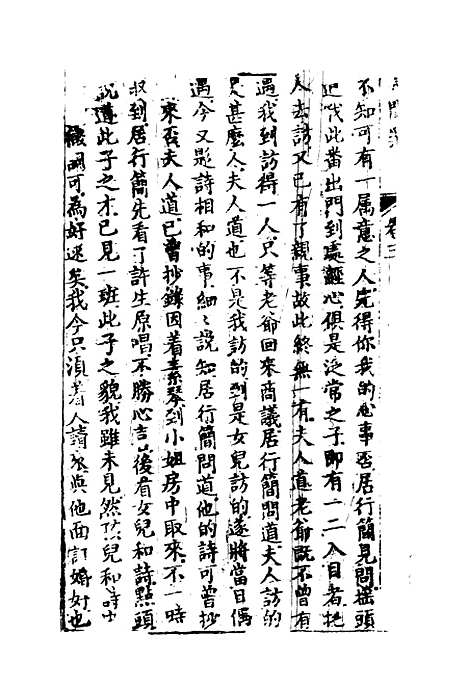 不知可有一属意之人先得你我的心事否居行簡見問揺頭
道我此番出門到處經心俱是泛常之子即有一二入目者把
人去訪又已有了親事故此終無一有夫人道老爺既不曾有
遇我到訪得一人只等老爺回來商議居行簡問道夫人訪的
是甚麽人夫人道也不是我訪的到是女兒訪的遂將當日偶
遇今又題詩相和的事細細說知居行簡問道他的詩可曾抄
來否夫人道已曾抄錄因着素琴到小姐房中取來不一時
取到居行簡先看了許生原唱不勝心喜後看女兒和詩點頭
說道此子之才已見一班此子之貌我雖未見然孩兒和詩
可為好逑矣我今只須着人請來與他面訂婚好也
卷三